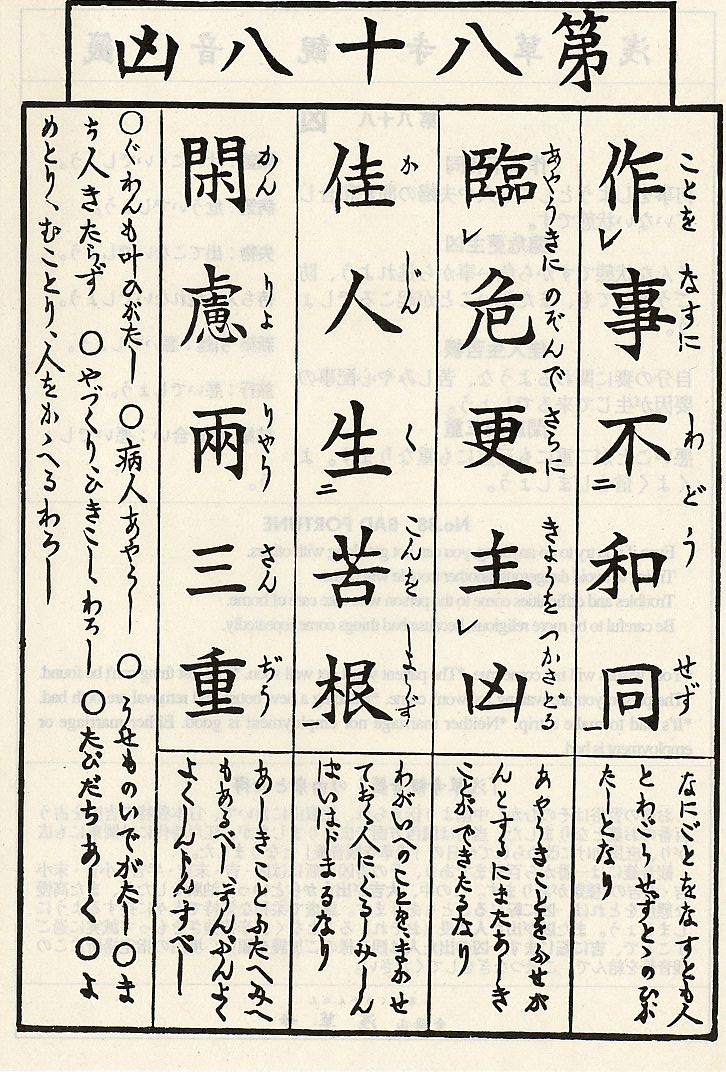 第八十八凶
ことを なすに わどう せず
作レ事不二和同一
なにごとをなすとも人
とわがうせずとゝのひが
たしとなり
あやうきにのぞんでさらにきようをつかさどる
臨レ危更主レ凶
あやうきことをふせが
んとするにまたあしき
ことができたるなり
かじん くこんをしようず
佳人生二苦根一
わがいへのことをまかせ
ておく人に、くるしみしん
ぱいはじまるなり
かん りよ りやう さん ぢう
閑慮兩三重
あしきことふたへみへ
もあるべし
よくしんじんすべし
○ぐわんも叶ひがたし ○病人あやうし ○うせものいでがたし ○ま
ち人きたらず ○やづくり、ひきこしわろし ○たびだちあしく ○よ
めとり、むことり、人をかゝへるわろし